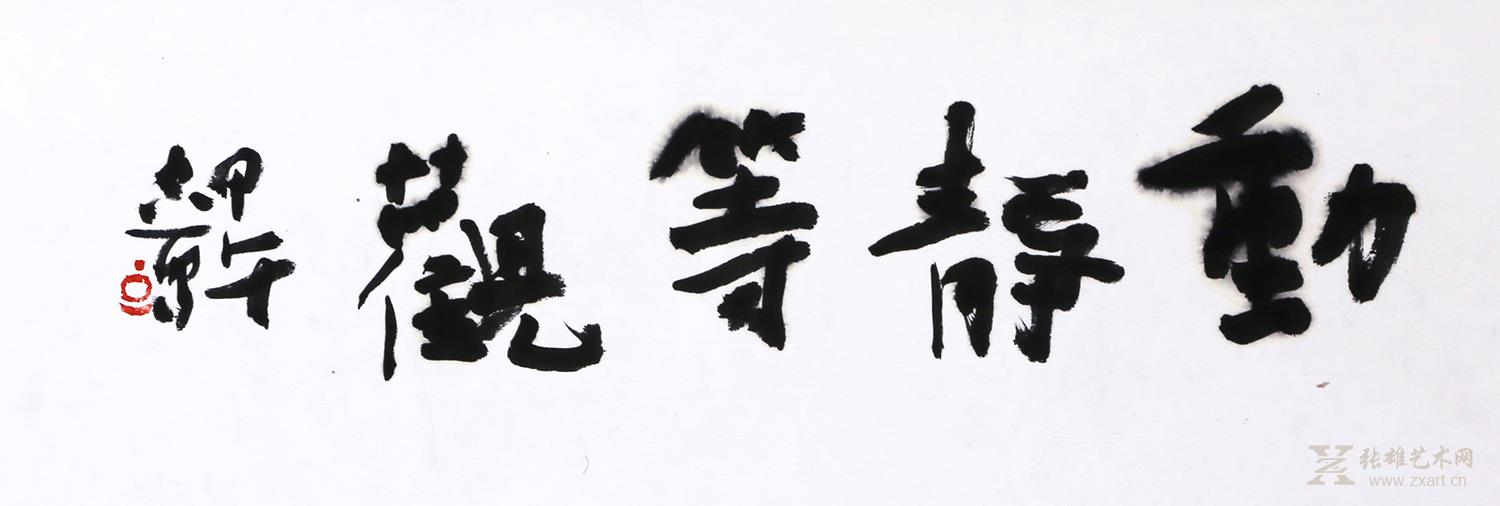 動靜等觀
张雄艺术网
www.zxart.cn